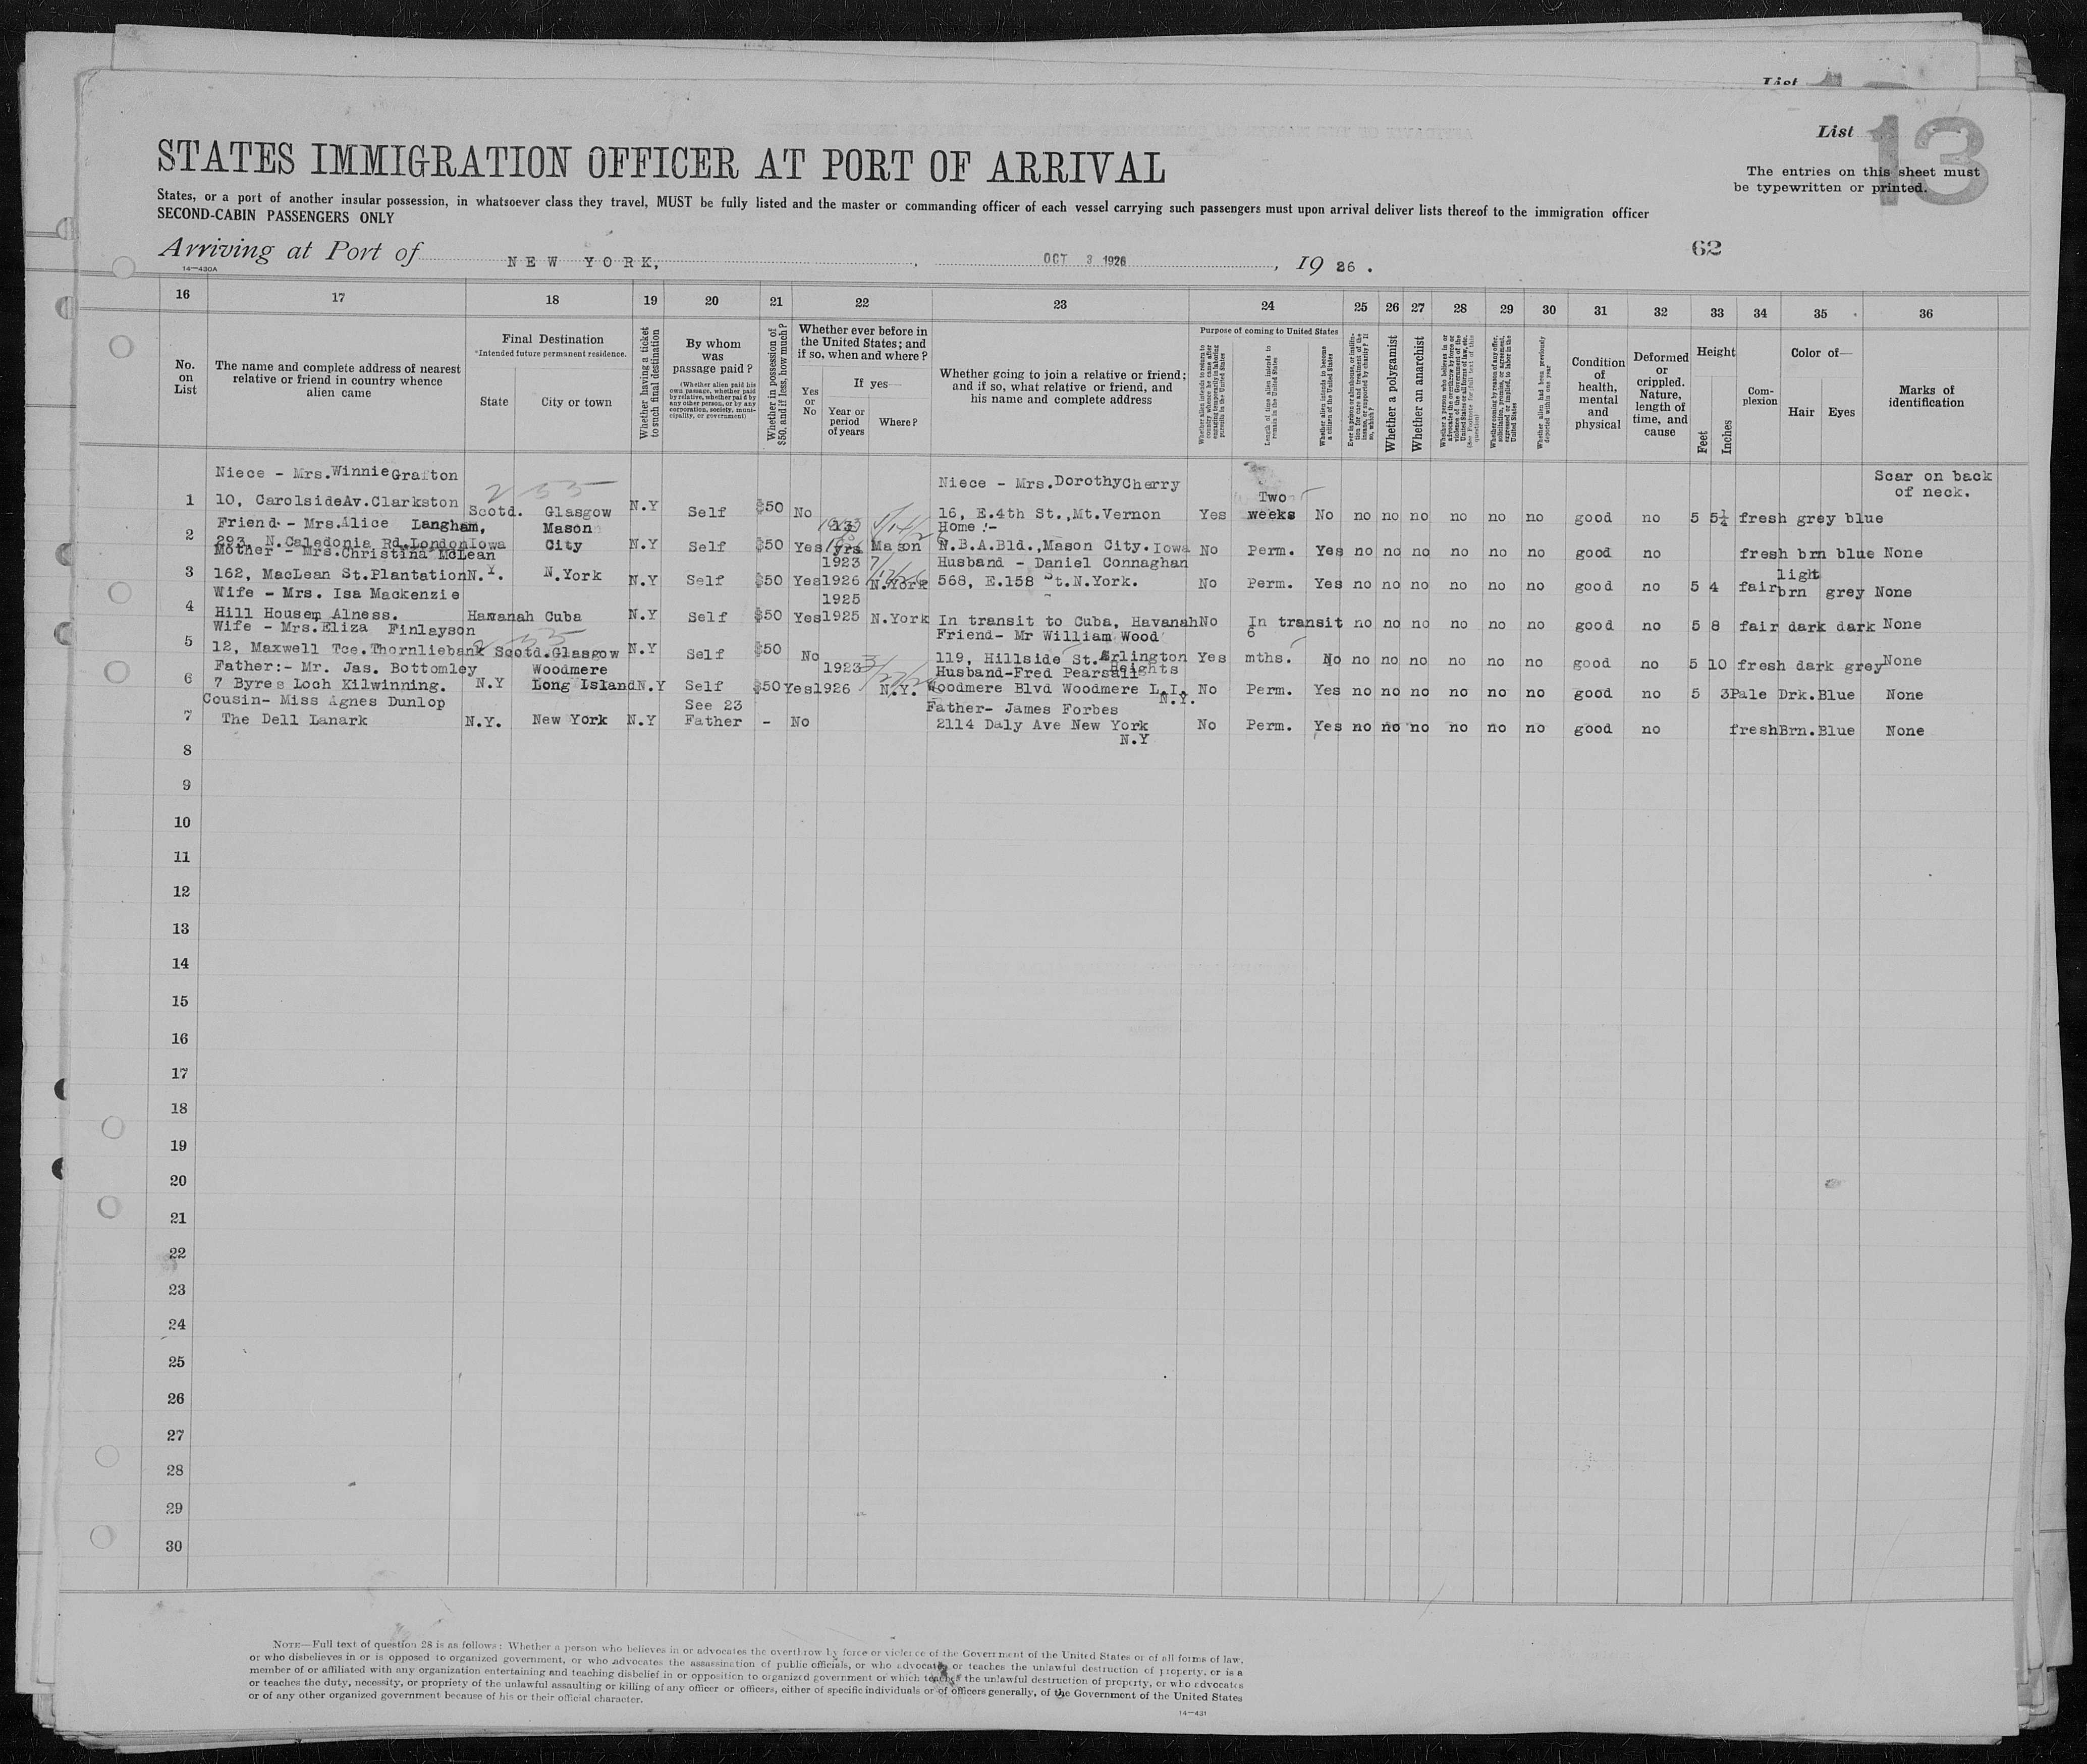 List
List 13
STATES IMMIGRATION OFFICER AT PORT OF ARRIVAL
The entries on this sheet must
be typewritten or printed.
States, or a port of another insular possession, in whatsoever class they travel, MUST be fully listed and the master or commanding officer of each vessel carrying such passengers must upon arrival deliver lists thereof to the immigration officer
SECOND-CABIN PASSENGERS ONLY
62
Arriving at Port of NEW YORK, OCT 3 1926, 19 26.
14—430A
16 17 18 19 20 21 22 23 24 25 26 27 28 29 30 31 32 33 34 35 36
No. on List
The name and complete address of nearest relative or friend in country whence alien came
Final Destination
*Intended future permanent residence.
State City or town
Whether having a ticket to such final destination
By whom was passage paid?
(Whether alien paid his own passage, whether paid by relative, whether paid by any other person, or by any corporation, society, municipality, or government)
Whether in possession of $50, and if less, how much?
Whether ever before in the United States; and if so, when and where?
Yes or No
If yes—
Year or period of years
Where?
Whether going to join a relative or friend; and if so, what relative or friend, and his name and complete address
Purpose of coming to United States
Whether alien intends to return to country whence he came after engaging temporarily in laboring pursuits in the United States
Length of time alien intends to remain in the United States
Whether alien intends to become a citizen of the United States
Ever in prison or almshouse, or institution for care and treatment of the insane, or supported by charity? If so, which?
Whether a polygamist
Whether an anarchist
Whether a person who believes in or advocates the overthrow by force or violence of the Government of the United States or all forms of law, etc. (See footnote for full text of this question)
Whether coming by reason of any offer, solicitation, promise, or agreement, expressed or implied, to labor in the United States
Whether alien has been previously deported within one year
Condition of health, mental and physical
Deformed or crippled. Nature, length of time, and cause
Height
Feet Inches
Complexion
Color of—
Hair Eyes
Marks of identification
Niece - Mrs. Winnie Grafton Niece - Mrs. Dorothy Cherry Scar on back
1 10, Carolside Av. Clarkston Scotd. Glasgow N.Y Self $50 No 16, E.4th St., Mt. Vernon Yes Two weeks No no no no no no no good no 5 5¼ fresh grey blue of neck.
Friend - Mrs. Alice Langham, Mason 13 Home :-
2 293, N. Caledonia Rd. London Iowa City N.Y Self $50 Yes yrs Mason N.B.A. Bld., Mason City. Iowa No Perm. Yes no no no no no no good no fresh brn blue None
Mother - Mrs. Christina McLean 1923 Husband - Daniel Connaghan
3 162, MacLean St. Plantation N.Y. N.York N.Y Self $50 Yes 1926 N.York 568, E.158 St. N.York. No Perm. Yes no no no no no no good no 5 4 fair light brn grey None
Wife - Mrs. Isa Mackenzie 1925
4 Hill Housem Alness. Havanah Cuba N.Y Self $50 Yes 1925 N.York In transit to Cuba, Havanah No In transit no no no no no no good no 5 8 fair dark dark None
Wife - Mrs. Eliza Finlayson Friend- Mr William Wood 6
5 12, Maxwell Tce. Thornliebank Scotd. Glasgow N.Y Self $50 No 119, Hillside St. Arlington Heights Yes mths. No no no no no no no good no 5 10 fresh dark grey None
Father:- Mr. Jas. Bottomley Woodmere 1923 Husband-Fred Pearsall
6 7 Byres Loch Kilwinning. N.Y Long Island N.Y Self $50 Yes 1926 N.Y. Woodmere Blvd Woodmere L.I. N.Y. No Perm. Yes no no no no no no good no 5 3 Pale Drk. Blue None
Cousin- Miss Agnes Dunlop See 23 Father- James Forbes
7 The Dell Lanark N.Y. New York N.Y Father - No 2114 Daly Ave New York No Perm. Yes no no no no no no good no fresh Brn. Blue None
N.Y
8
9
10
11
12
13
14
15
16
17
18
19
20
21
22
23
24
25
26
27
28
29
30
NOTE—Full text of question 28 is as follows: Whether a person who believes in or advocates the overthrow by force or violence of the Government of the United States or of all forms of law,
or who disbelieves in or is opposed to organized government, or who advocates the assassination of public officials, or who advocates or teaches the unlawful destruction of property, or is a
member of or affiliated with any organization entertaining and teaching disbelief in or opposition to organized government or which teaches the unlawful destruction of property, or who advocates
or teaches the duty, necessity, or propriety of the unlawful assaulting or killing of any officer or officers, either of specific individuals or of officers generally, of the Government of the United States
or of any other organized government because of his or their official character.
14—431